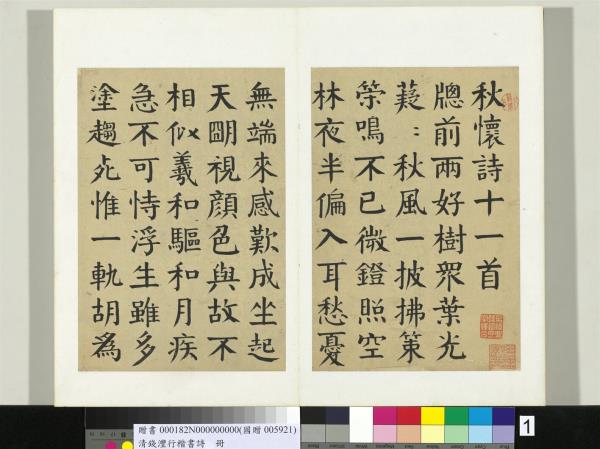 秋懷詩十一首
牕前兩好樹眾葉光
薿﹕秋風一披拂策
策鳴不已微鐙照空
林夜半偏入耳愁憂
無端來感歎成坐起
天明視顏色與故不
相似羲和驅和月疾
急不可恃浮生雖多
塗趨死惟一軌胡為
贈書 000182N000000000(國贈 005921)
清錢灃行楷書詩 冊
1